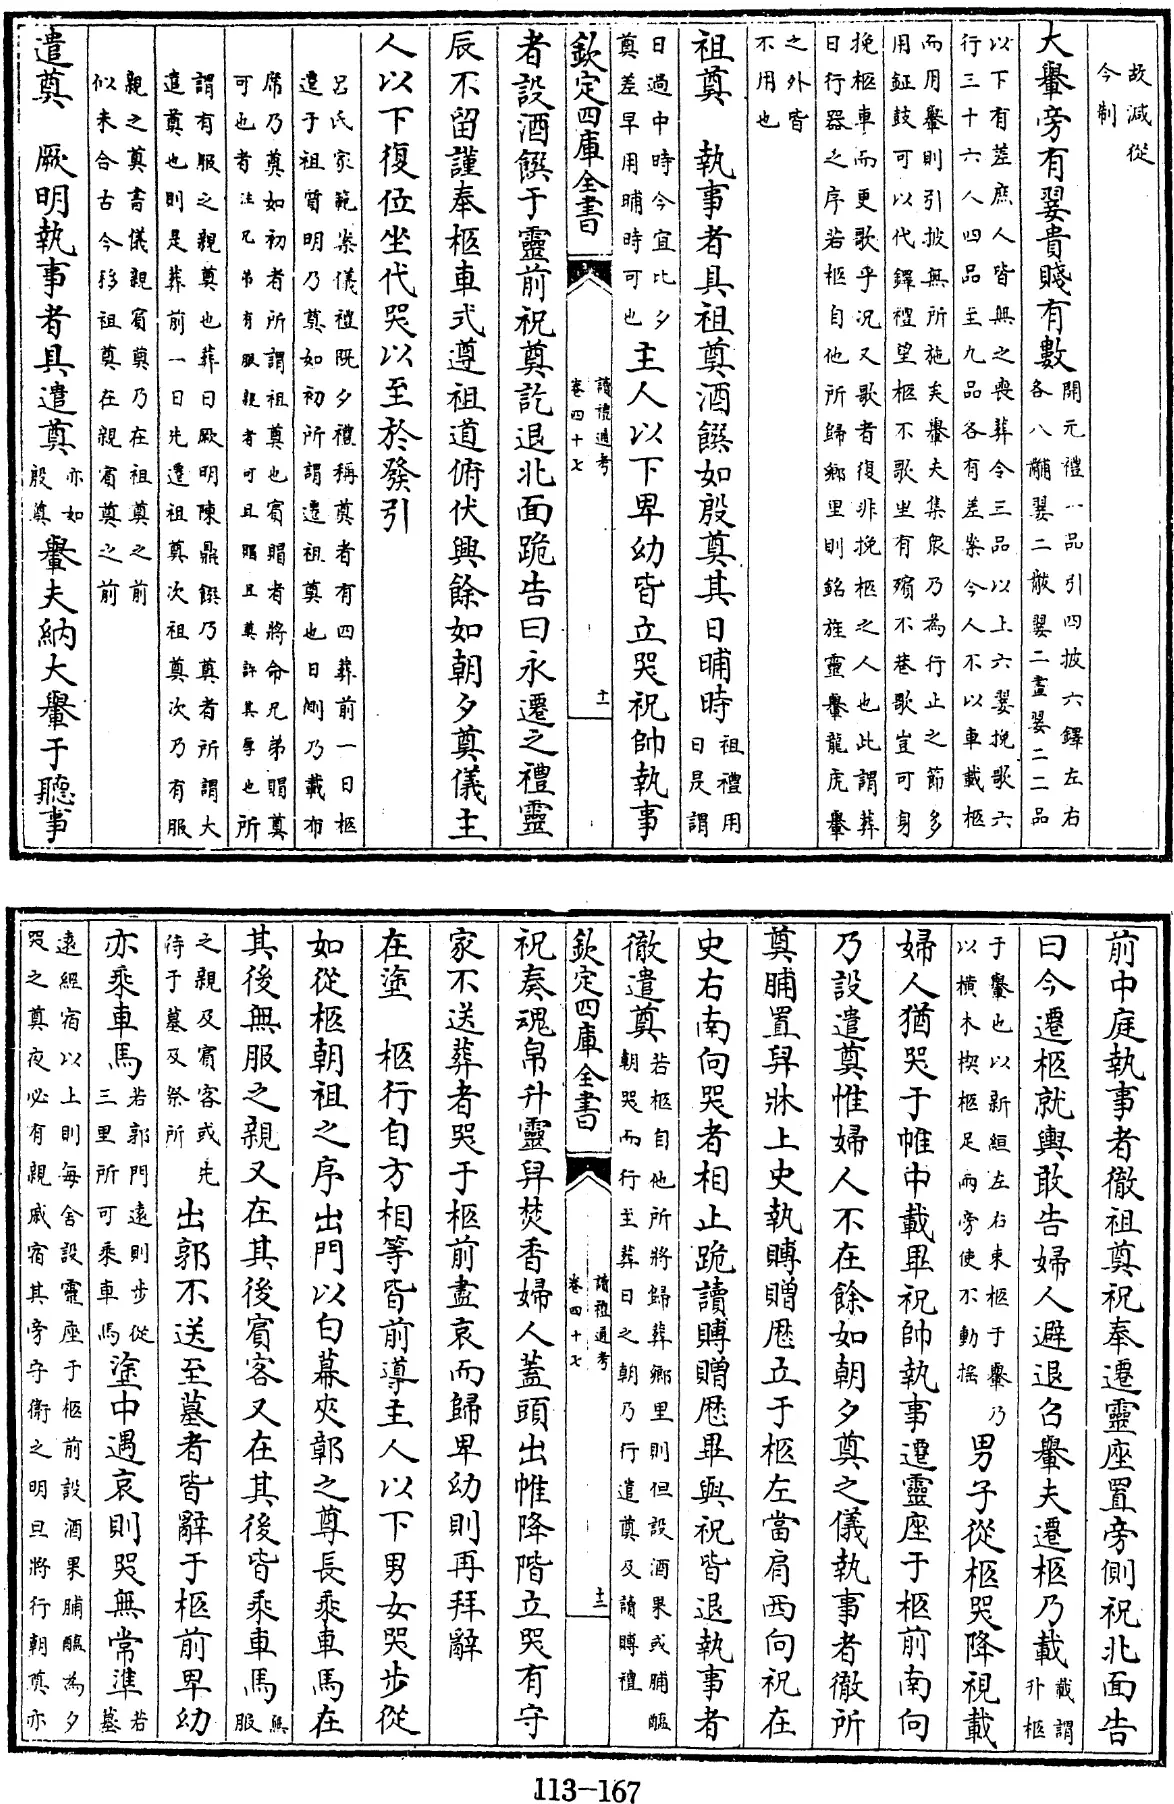 故減從
今制
大轝旁有翣貴賤有數 開元禮一品引四披六鐸左右
各八黼翣二黻翣二畫翣二二品
以下有差庶人皆無之喪葬令三品以上六翣挽歌六
行三十六人四品至九品各有差案今人不以車載柩
而用轝則引披無所施矣轝夫集衆乃為行止之節多
用鉦鼓可以代鐸禮望柩不歌里有殯不巷歌豈可身
挽柩車而更歌乎況又歌者復非挽柩之人也此謂葬
日行器之序若柩自他所歸鄉里則銘旌靈轝龍虎轝
之外皆
不用也
祖奠　執事者具祖奠酒饌如殷奠其日晡時 祖禮用
日是謂
日過中時今宜比夕
奠差早用晡時可也 主人以下卑幼皆立哭祝帥執事
欽定四庫全書
讀禮通考
卷四十七
十一
者設酒饌于靈前祝奠訖退北面跪告曰永遷之禮靈
辰不留謹奉柩車式遵祖道俯伏興餘如朝夕奠儀主
人以下復位坐代哭以至於發引
呂氏家範案儀禮既夕禮稱奠者有四葬前一日柩
遷于祖質明乃奠如初所謂遷祖奠也日側乃載布
席乃奠如初者所謂祖奠也賓賵者將命兄弟賵奠
可也者注兄弟有服親者可且賵且奠許其厚也所
謂有服之親奠也葬日厥明陳鼎饌乃奠者所謂大
遣奠也則是葬前一日先遷祖奠次祖奠次乃有服
親之奠書儀親賓奠乃在祖奠之前
似未合古今移祖奠在親賓奠之前
遣奠　厥明執事者具遣奠 亦如
殷奠 轝夫納大轝于聽事
前中庭執事者徹祖奠祝奉遷靈座置旁側祝北面告
曰今遷柩就輿敢告婦人避退召轝夫遷柩乃載 載謂
升柩
于轝也以新絙左右束柩于轝乃
以橫木楔柩足兩旁使不動搖 男子從柩哭降視載
婦人猶哭于帷中載畢祝帥執事遷靈座于柩前南向
乃設遣奠惟婦人不在餘如朝夕奠之儀執事者徹所
奠脯置舁牀上史執賻贈歷立于柩左當肩西向祝在
史右南向哭者相止跪讀賻贈歷畢與祝皆退執事者
徹遣奠 若柩自他所將歸葬鄉里則但設酒果或脯醢
朝哭而行至葬日之朝乃行遣奠及讀賻禮
欽定四庫全書
讀禮通考
卷四十七
十二
祝奏魂帛升靈舁焚香婦人蓋頭出帷降階立哭有守
家不送葬者哭于柩前盡哀而歸卑幼則再拜辭
在塗　柩行自方相等皆前導主人以下男女哭步從
如從柩朝祖之序出門以白幕夾鄣之尊長乘車馬在
其後無服之親又在其後賓客又在其後皆乘車馬 無
服
之親及賓客或先
待于墓及祭所 出郭不送至墓者皆辭于柩前卑幼
亦乘車馬 若郭門遠則步從
三里所可乘車馬 塗中遇哀則哭無常準 若
墓
遠經宿以上則每舍設靈座于柩前設酒果脯醢為夕
哭之奠夜必有親戚宿其旁守衛之明旦將行朝奠亦
113—167